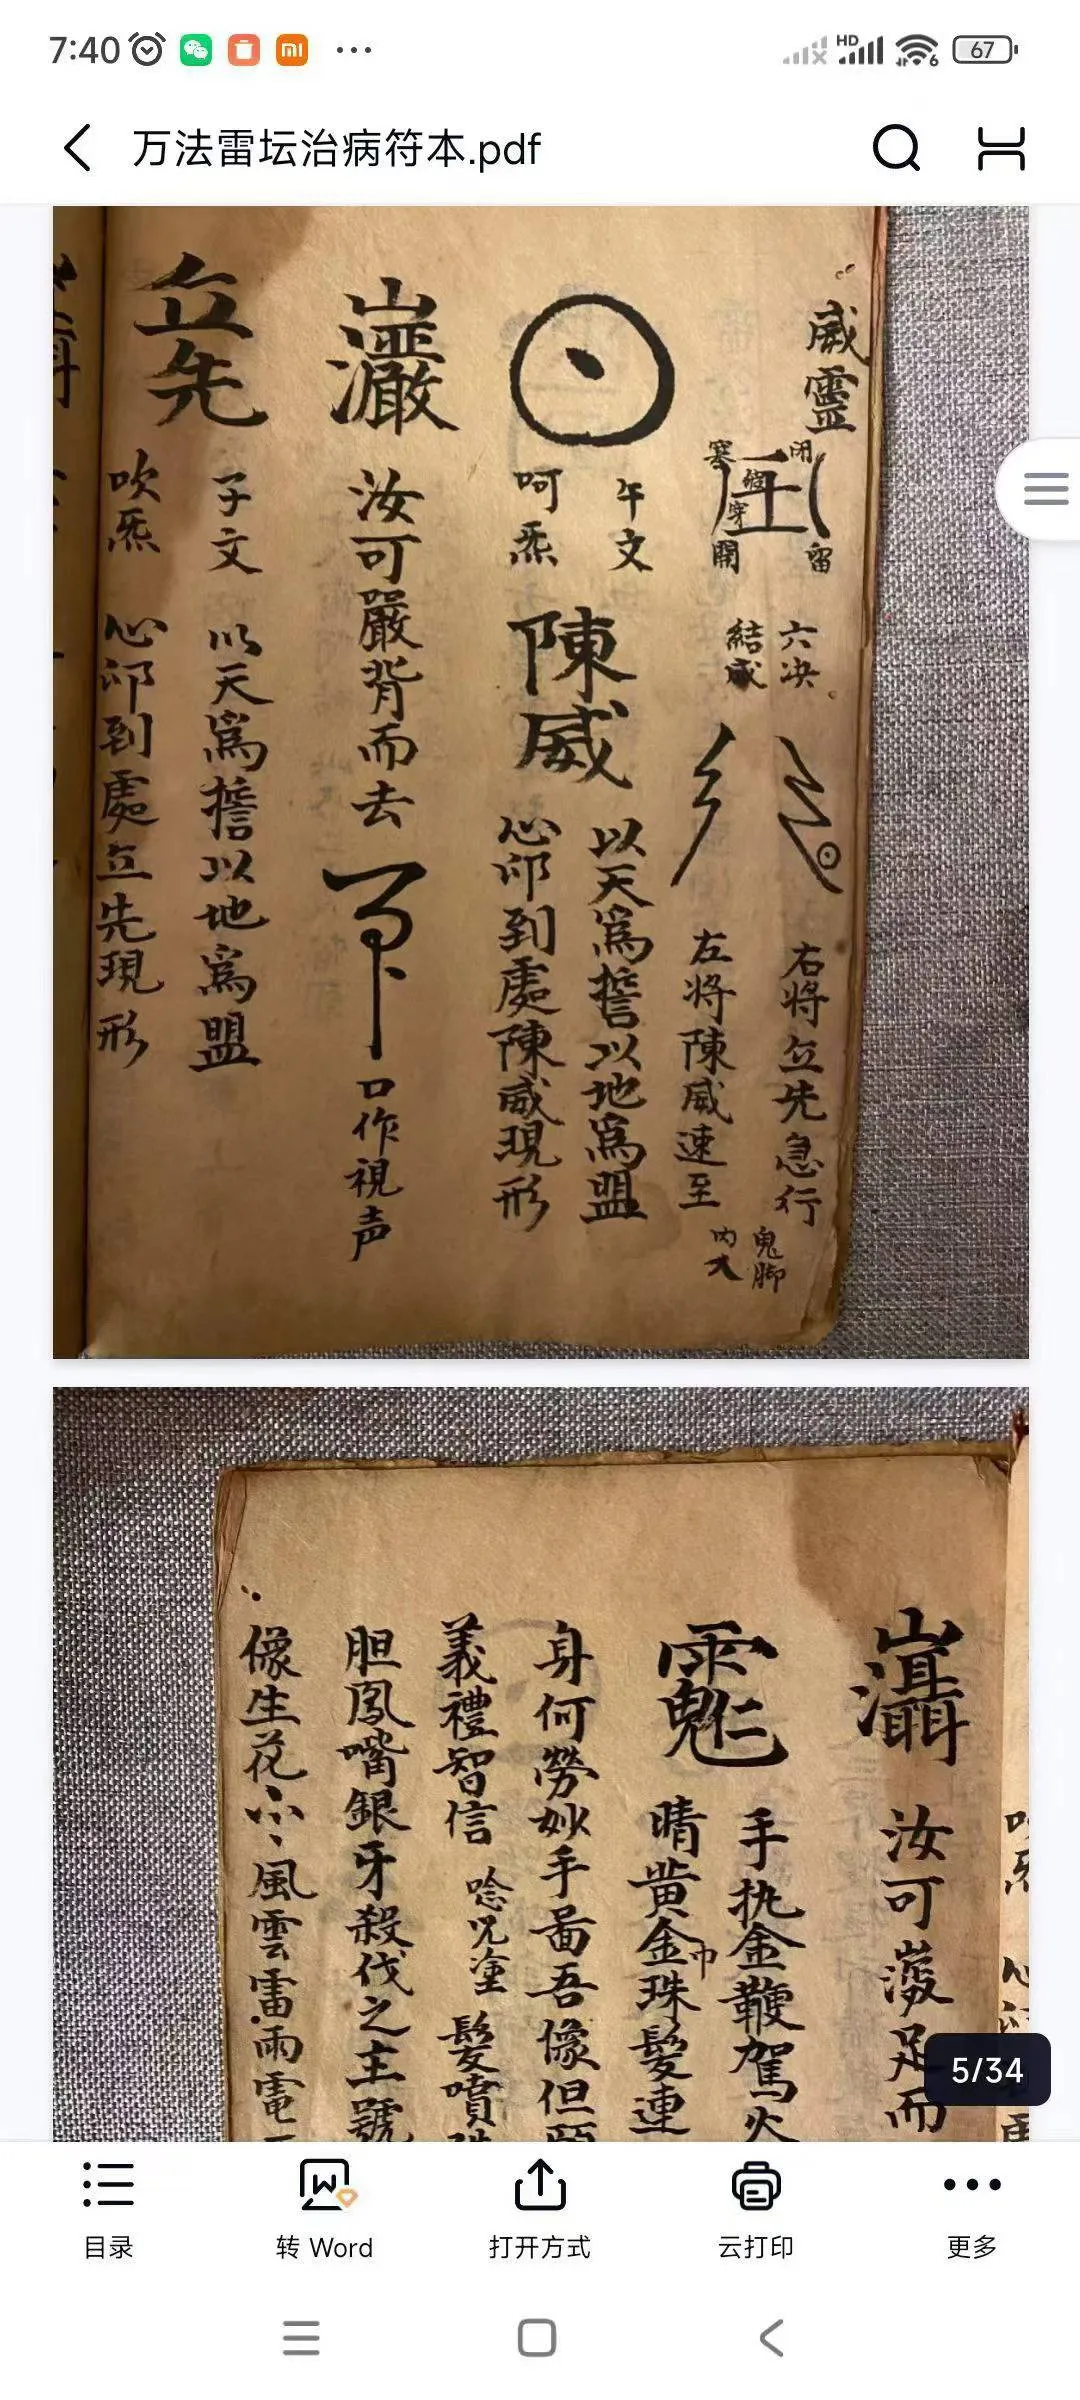 7:40
HD
6
67
万法雷坛治病符本.pdf
威靈
閉
塞
開
留
六决
結威
右將立先急行
左將陳威速至
鬼脚
内大
午文
呵炁
陳威
以天爲誓以地爲盟
心印到處陳威現形
汝可嚴背而去
口作視声
立先
子文
吹炁
以天爲誓以地爲盟
心印到處立先現形
汝可
足而
手执金鞭駕火
睛黄金珠髮連
巾
身何勞妙手畫吾像但
義禮智信
唸咒畫
髮噴
胆鳳嘴銀牙殺伐之主號
像生花
風雲雷雨電
5/34
目录
转 Word
打开方式
云打印
更多